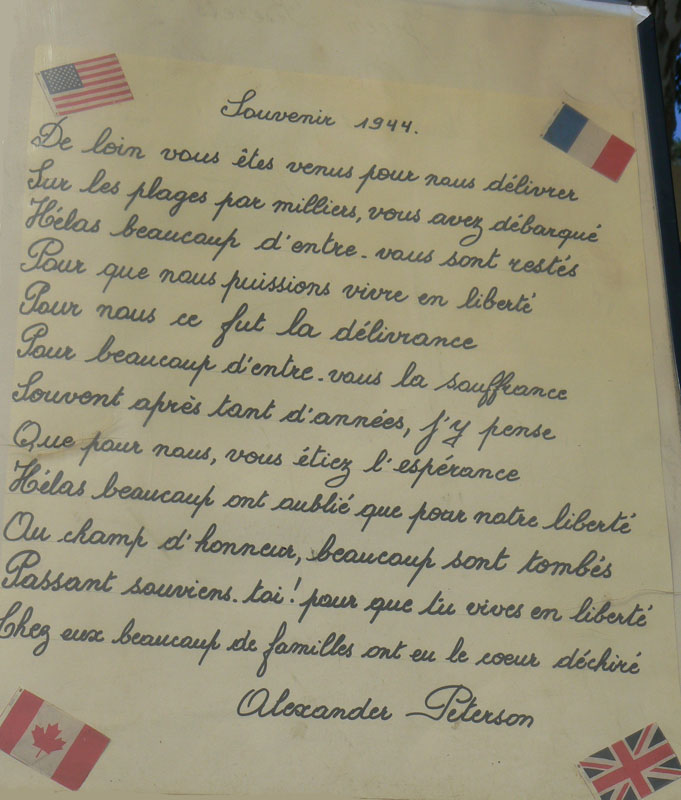 Souvenir 1944.
De loin vous êtes venus pour nous délivrer
Sur les plages par milliers, vous avez débarqué
Hélas beaucoup d'entre-vous sont restés
Pour que nous puissions vivre en liberté
Pour nous ce fut la délivrance
Pour beaucoup d'entre-vous la souffrance
Souvent après tant d'années, j'y pense
Que pour nous, vous étiez l'espérance
Hélas beaucoup ont oublié que pour notre liberté
Au champ d'honneur, beaucoup sont tombés
Passant souviens-toi! pour que tu vives en liberté
Chez eux beaucoup de familles ont eu le coeur déchiré
Alexander Peterson